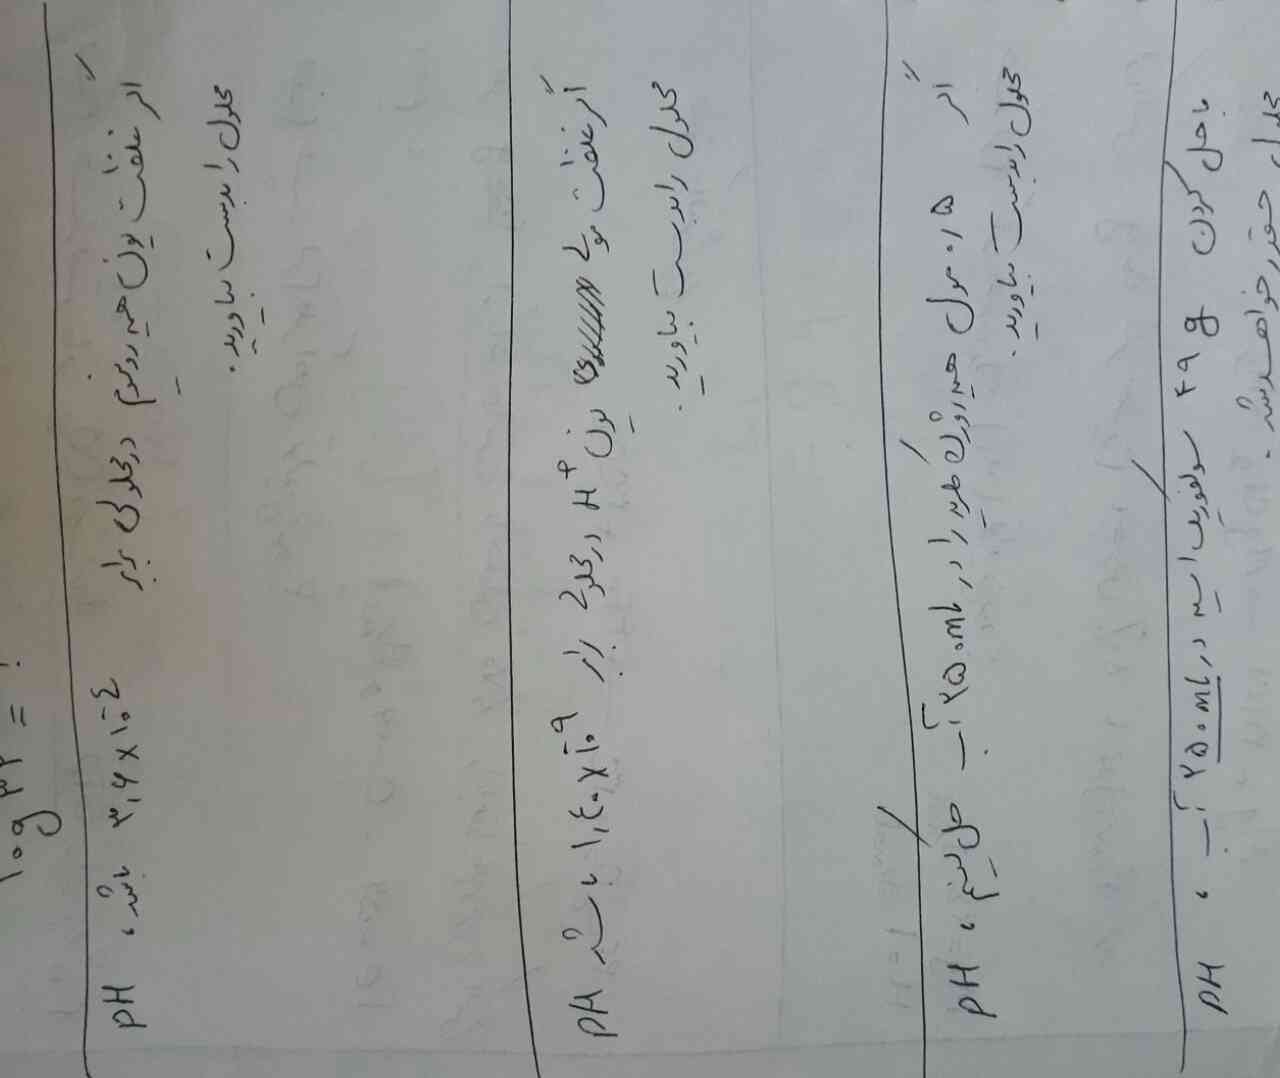 log ۳۲ = ?
اگر غلظت یون هیدرونیوم در محلولی برابر ۳,۶ × ۱۰⁻⁴ باشد، pH
محلول را بدست بیاورید.
اگر غلظت مولی یون H⁺ در محلولی برابر ۱,۴۰ × ۱۰⁻⁹ باشد pH
محلول را بدست بیاورید.
اگر ۰/۵ مول هیدروژن کلرید را در ۲۵۰ml آب حل کنیم، pH
محلول را بدست بیاورید.
با حل کردن ۴۹ g سولفوریک اسید در ۲۵۰ml آب، pH
محلول چقدر خواهد شد.